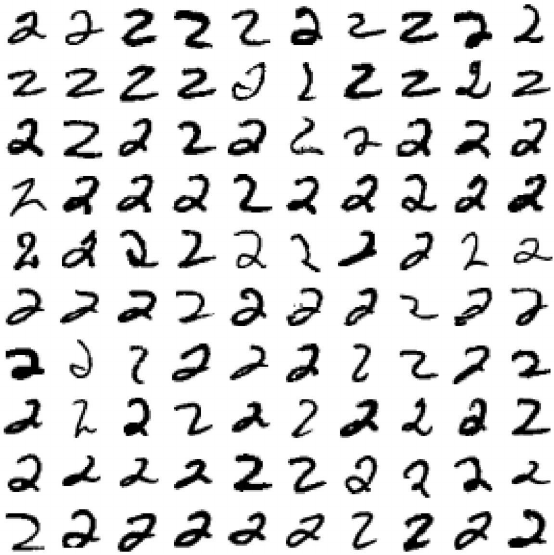 2 2 2 2 2 2 2 2 2 2
2 2 2 2 2 2 2 2 2 2
2 2 2 2 2 2 2 2 2 2
2 2 2 2 2 2 2 2 2 2
2 2 2 2 2 2 2 2 2 2
2 2 2 2 2 2 2 2 2 2
2 2 2 2 2 2 2 2 2 2
2 2 2 2 2 2 2 2 2 2
2 2 2 2 2 2 2 2 2 2
2 2 2 2 2 2 2 2 2 2